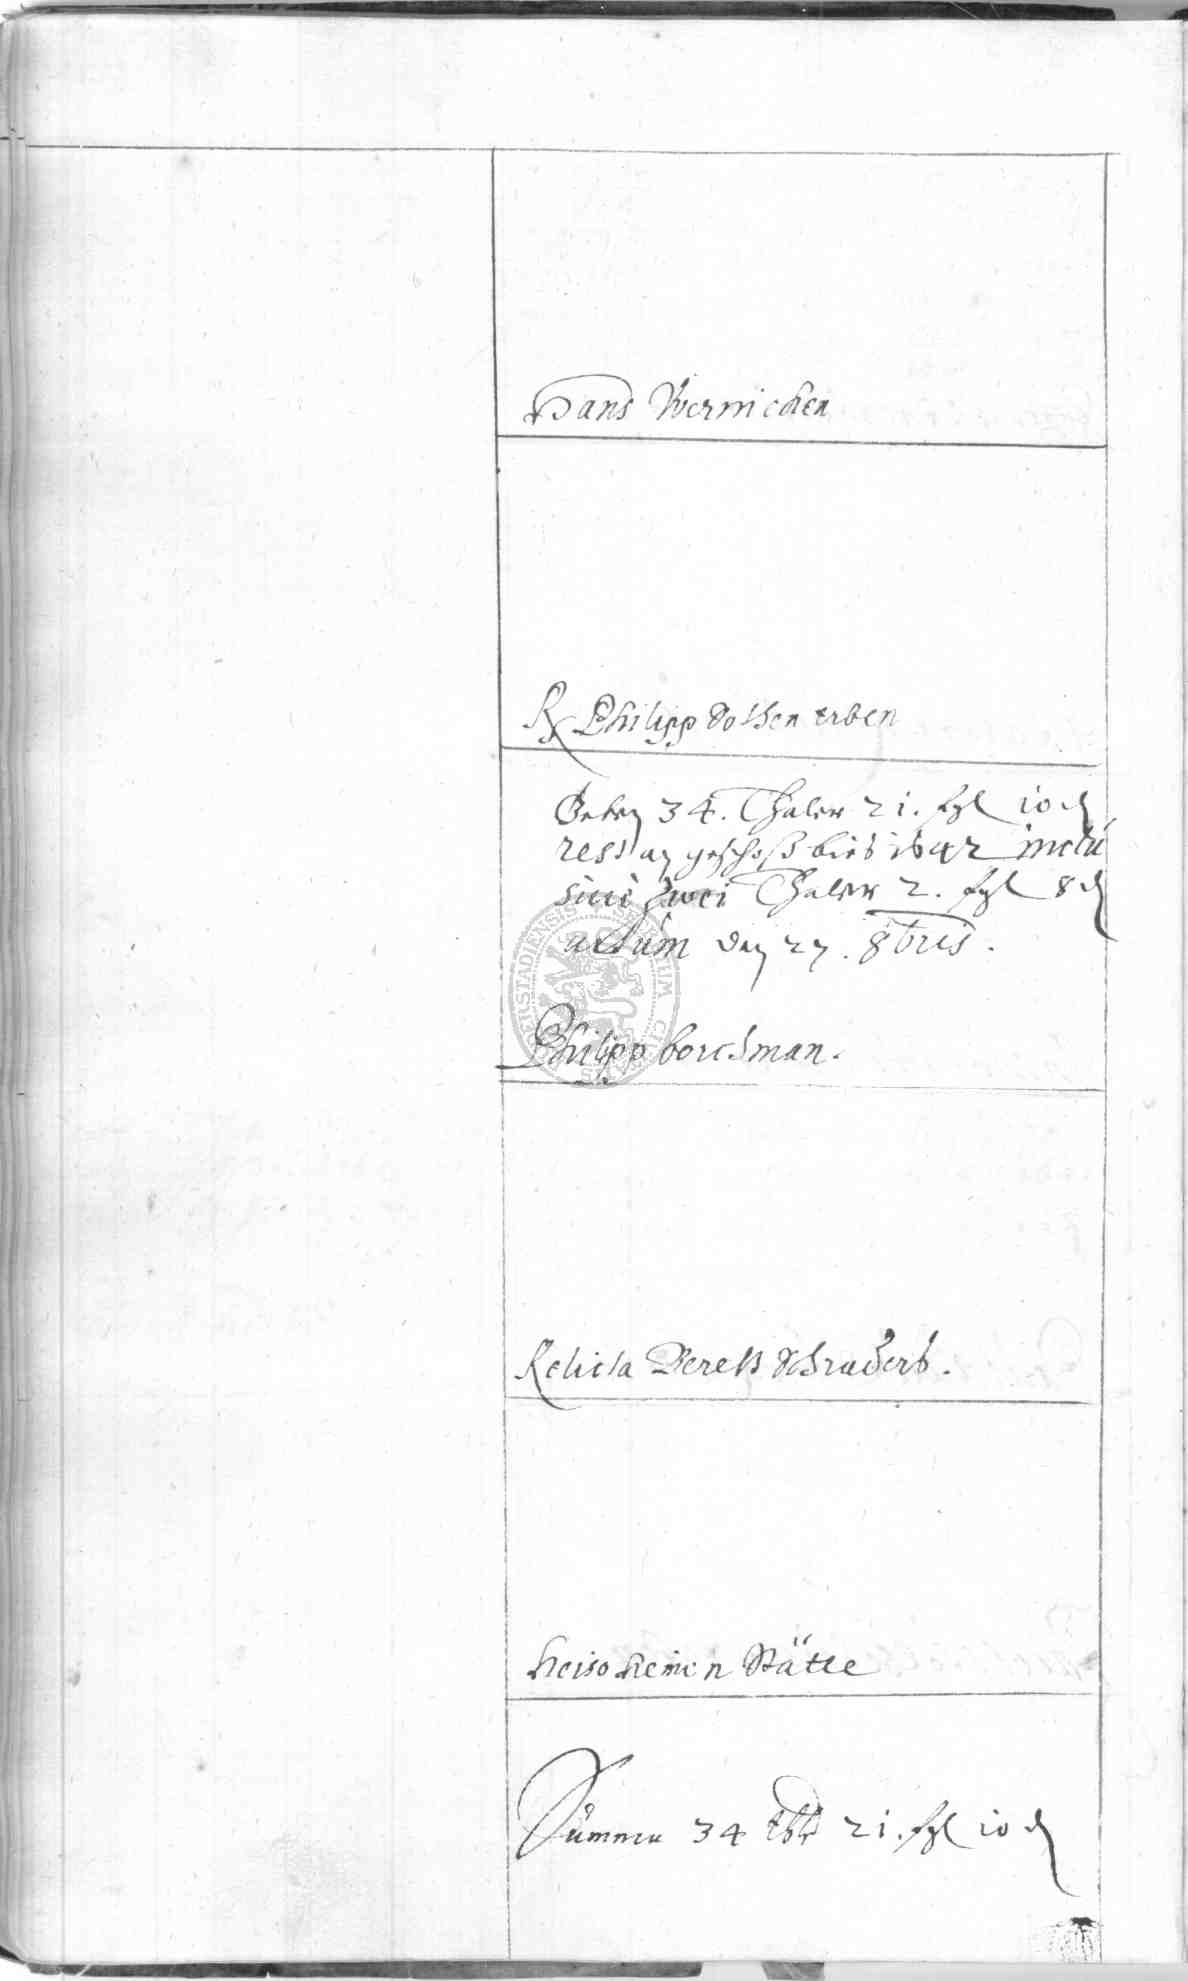 Hans Wernicken
Philipp Dothen erben
Geben 34. Thaler 21. sgl 10 d
rest an geschoß bies 1642 inclu
sive zwei Thaler 2. sgl 8 d
actum den 27. 8bris.
Philipp borchman.
Relicta Schraders.
heiso heinen Stätte
Summa 34 thlr 21. sgl 10 d